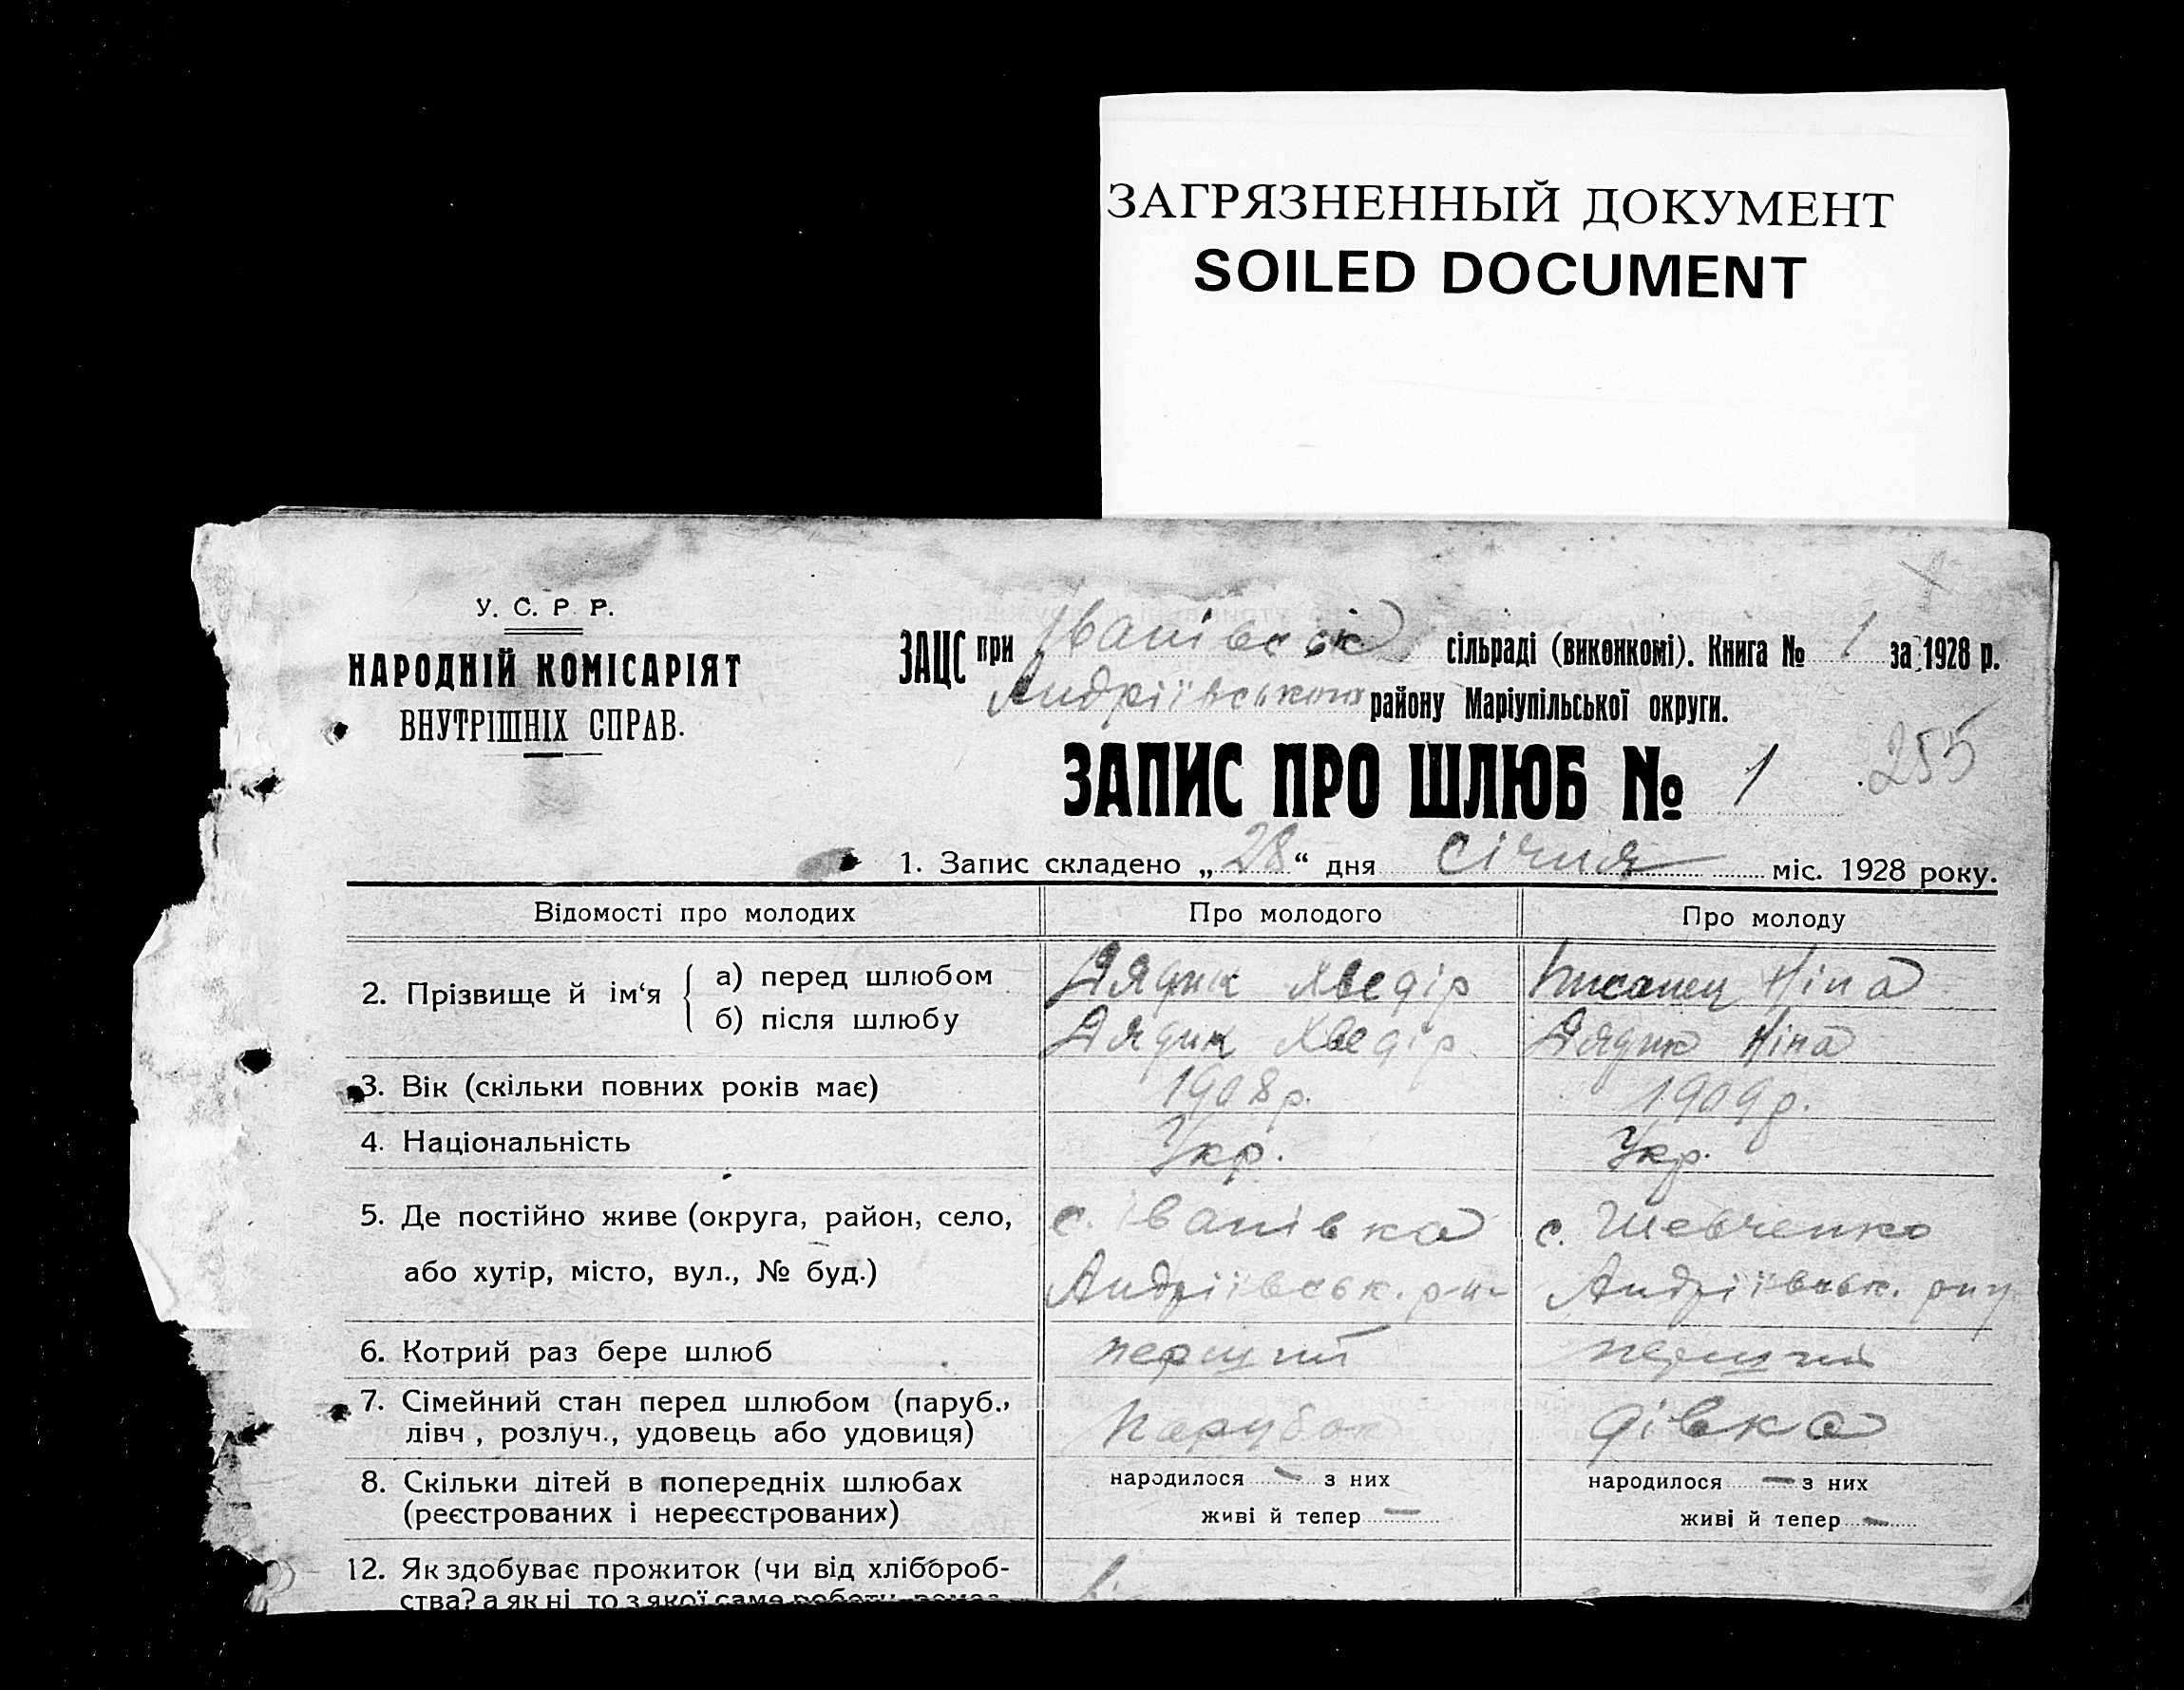 ЗАГРЯЗНЕННЫЙ ДОКУМЕНТ
SOILED DOCUMENT
У. С. Р. Р.
НАРОДНІЙ КОМІСАРІЯТ
ВНУТРІШНІХ СПРАВ.
ЗАЦС при Іванівськ сільраді (виконкомі). Книга № 1 за 1928 р.
Андріївського району Маріупільської округи.
ЗАПИС ПРО ШЛЮБ № 1
255
1. Запис складено „28“ дня січня міс. 1928 року.
Відомості про молодих Про молодого Про молоду
2. Прізвище й ім‘я
а) перед шлюбом Дядик Хведір Писанец Ніна
б) після шлюбу Дядик Хведір Дядик Ніна
3. Вік (скільки повних років має) 1908 р. 1909 р.
4. Національність Укр. Укр.
5. Де постійно живе (округа, район, село, с. Іванівка с. Шевченко
або хутір, місто, вул., № буд.) Андріївськ. р-н Андріївськ. р-ну
6. Котрий раз бере шлюб перший перший
7. Сімейний стан перед шлюбом (паруб.,
дівч , розлуч., удовець або удовиця) Парубок дівка
8. Скільки дітей в попередніх шлюбах народилося — з них народилося — з них
(реєстрованих і нереєстрованих) живі й тепер — живі й тепер —
12. Як здобуває прожиток (чи від хлібороб-
ства? а як ні, то з якої саме роботи,